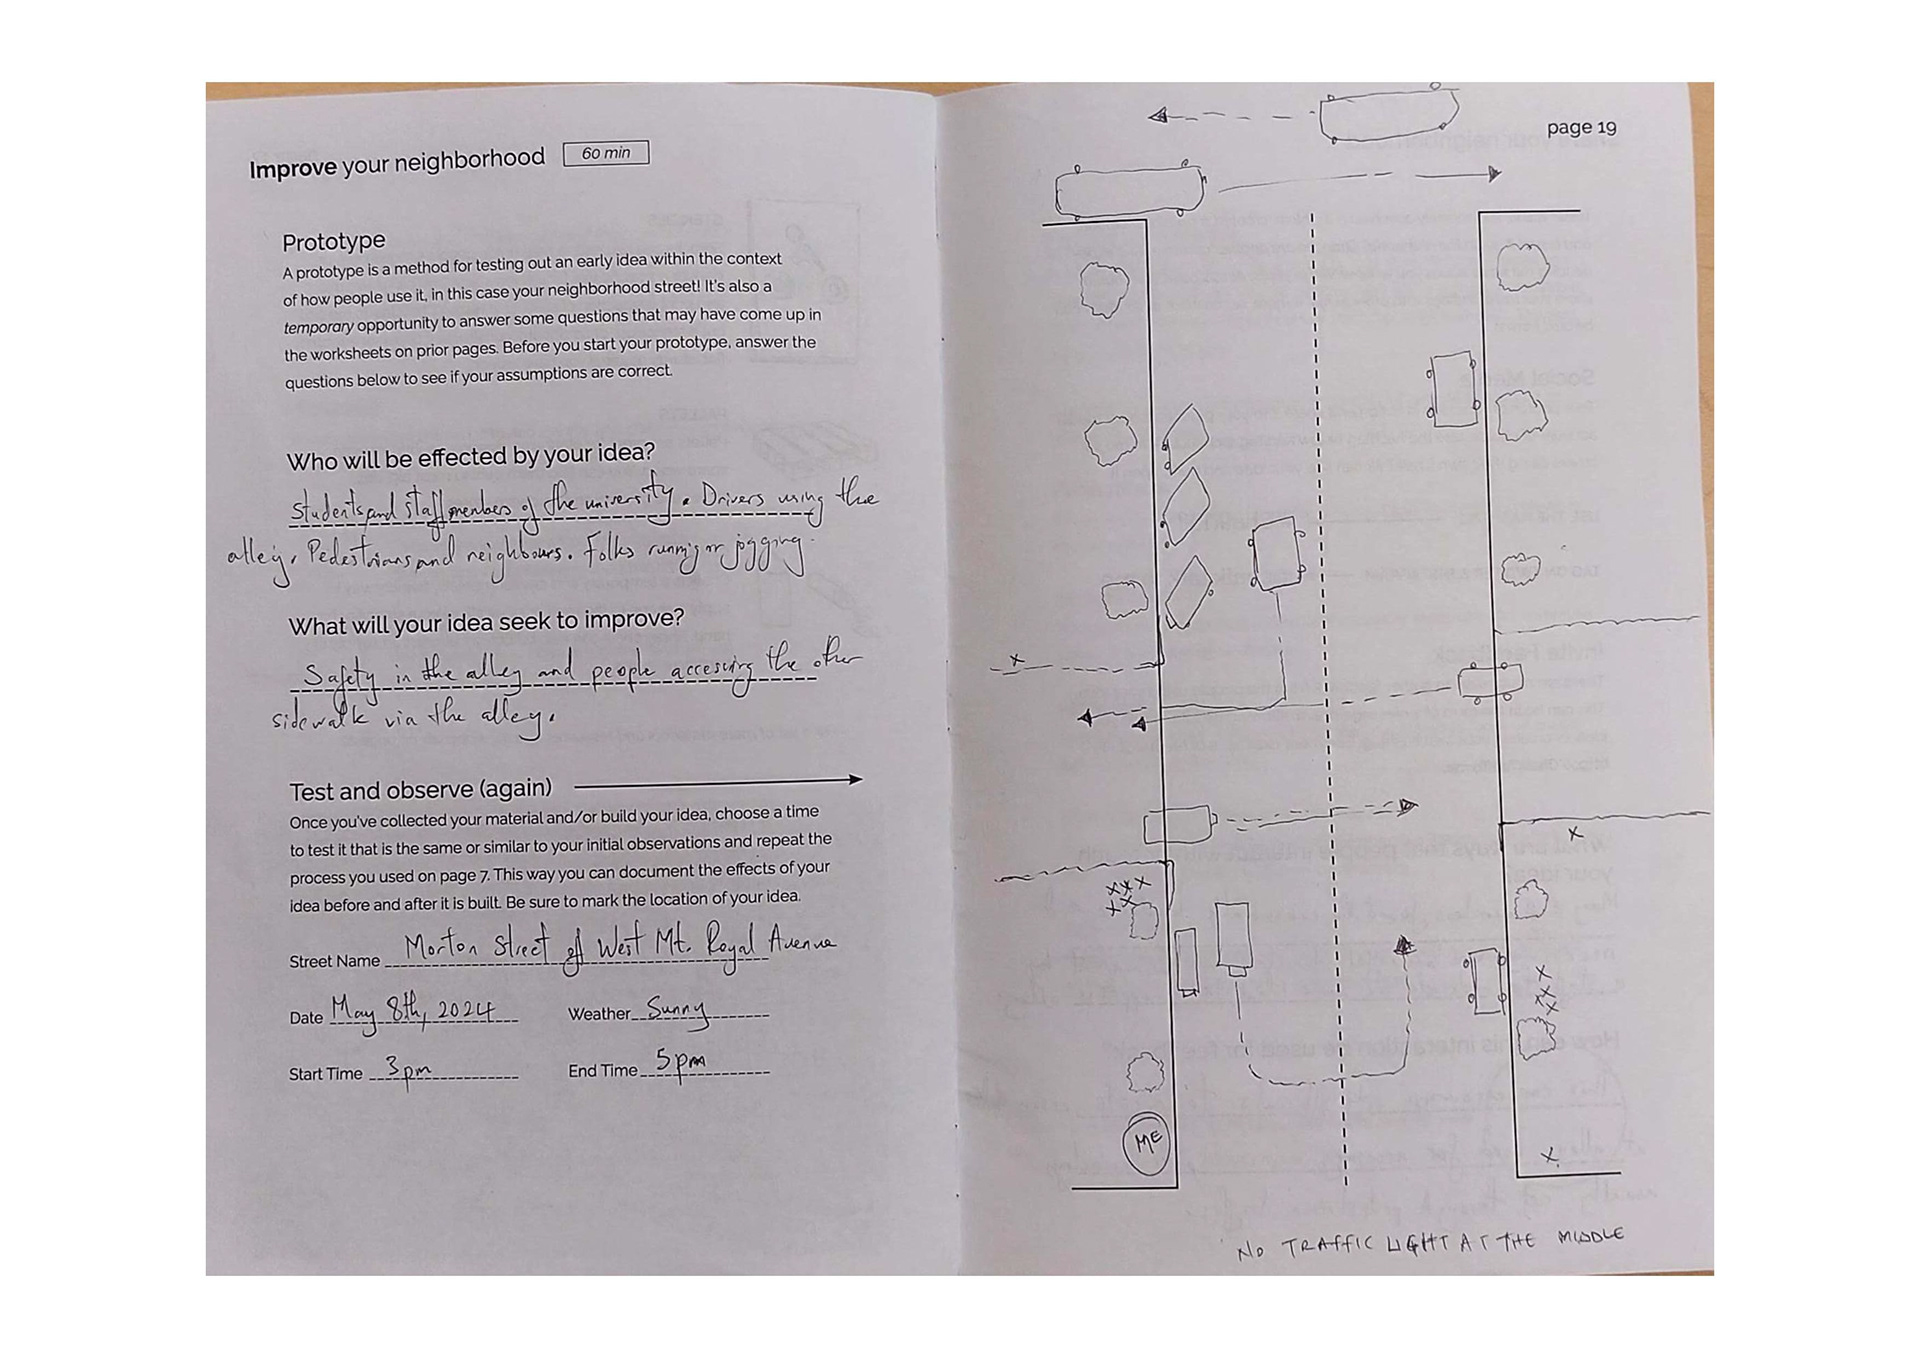 Improve your neighborhood
60 min
Prototype
A prototype is a method for testing out an early idea within the context
of how people use it, in this case your neighborhood street! It's also a
temporary opportunity to answer some questions that may have come up in
the worksheets on prior pages. Before you start your prototype, answer the
questions below to see if your assumptions are correct.
Who will be effected by your idea?
Students and staff members of the university. Drivers using the
alley. Pedestrians and neighbours. Folks running or jogging.
What will your idea seek to improve?
Safety in the alley and people accessing the other
sidewalk via the alley.
Test and observe (again)
Once you've collected your material and/or build your idea, choose a time
to test it that is the same or similar to your initial observations and repeat the
process you used on page 7. This way you can document the effects of your
idea before and after it is built. Be sure to mark the location of your idea.
Street Name Morton Street of West Mt. Royal Avenue
Date May 8th, 2024 Weather Sunny
Start Time 3pm End Time 5pm
page 19
x
x
xxx
xx
x
xx
x
ME
x
NO TRAFFIC LIGHT AT THE MIDDLE